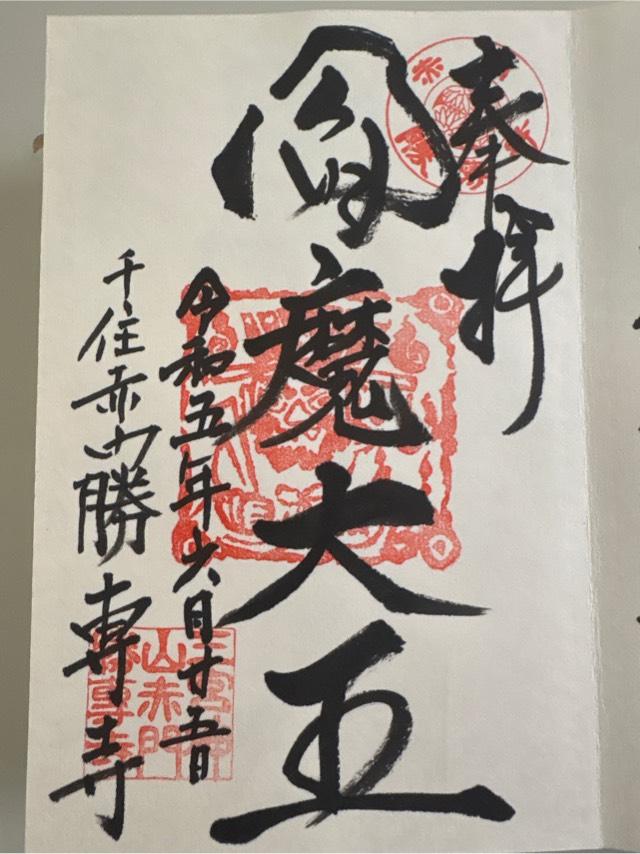 奉拝
閻魔大王
令和五年六月廿五日
千住赤門勝専寺
三宮神
山赤門
勝専寺